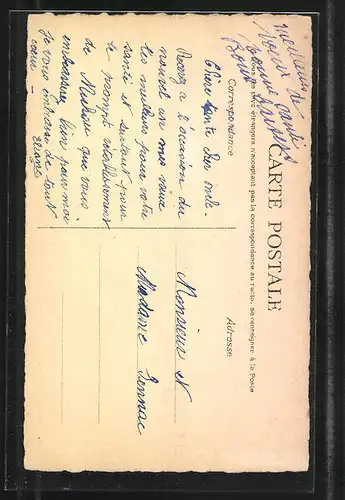 CARTE POSTALE
Tous les pays étrangers n'acceptent pas la correspondance au recto, se renseigner à la Poste
Correspondance
Adresse
Meilleurs
Bonne santé
Chère tante cher oncle.
Recevez à l'occasion du
nouvel an mes vœux
les meilleurs pour votre
santé et surtout pour
le prompt rétablissement
de que vous
embrasserez bien pour moi
Je vous embrasse de tout
cœur -
Eliane
Monsieur et
Madame